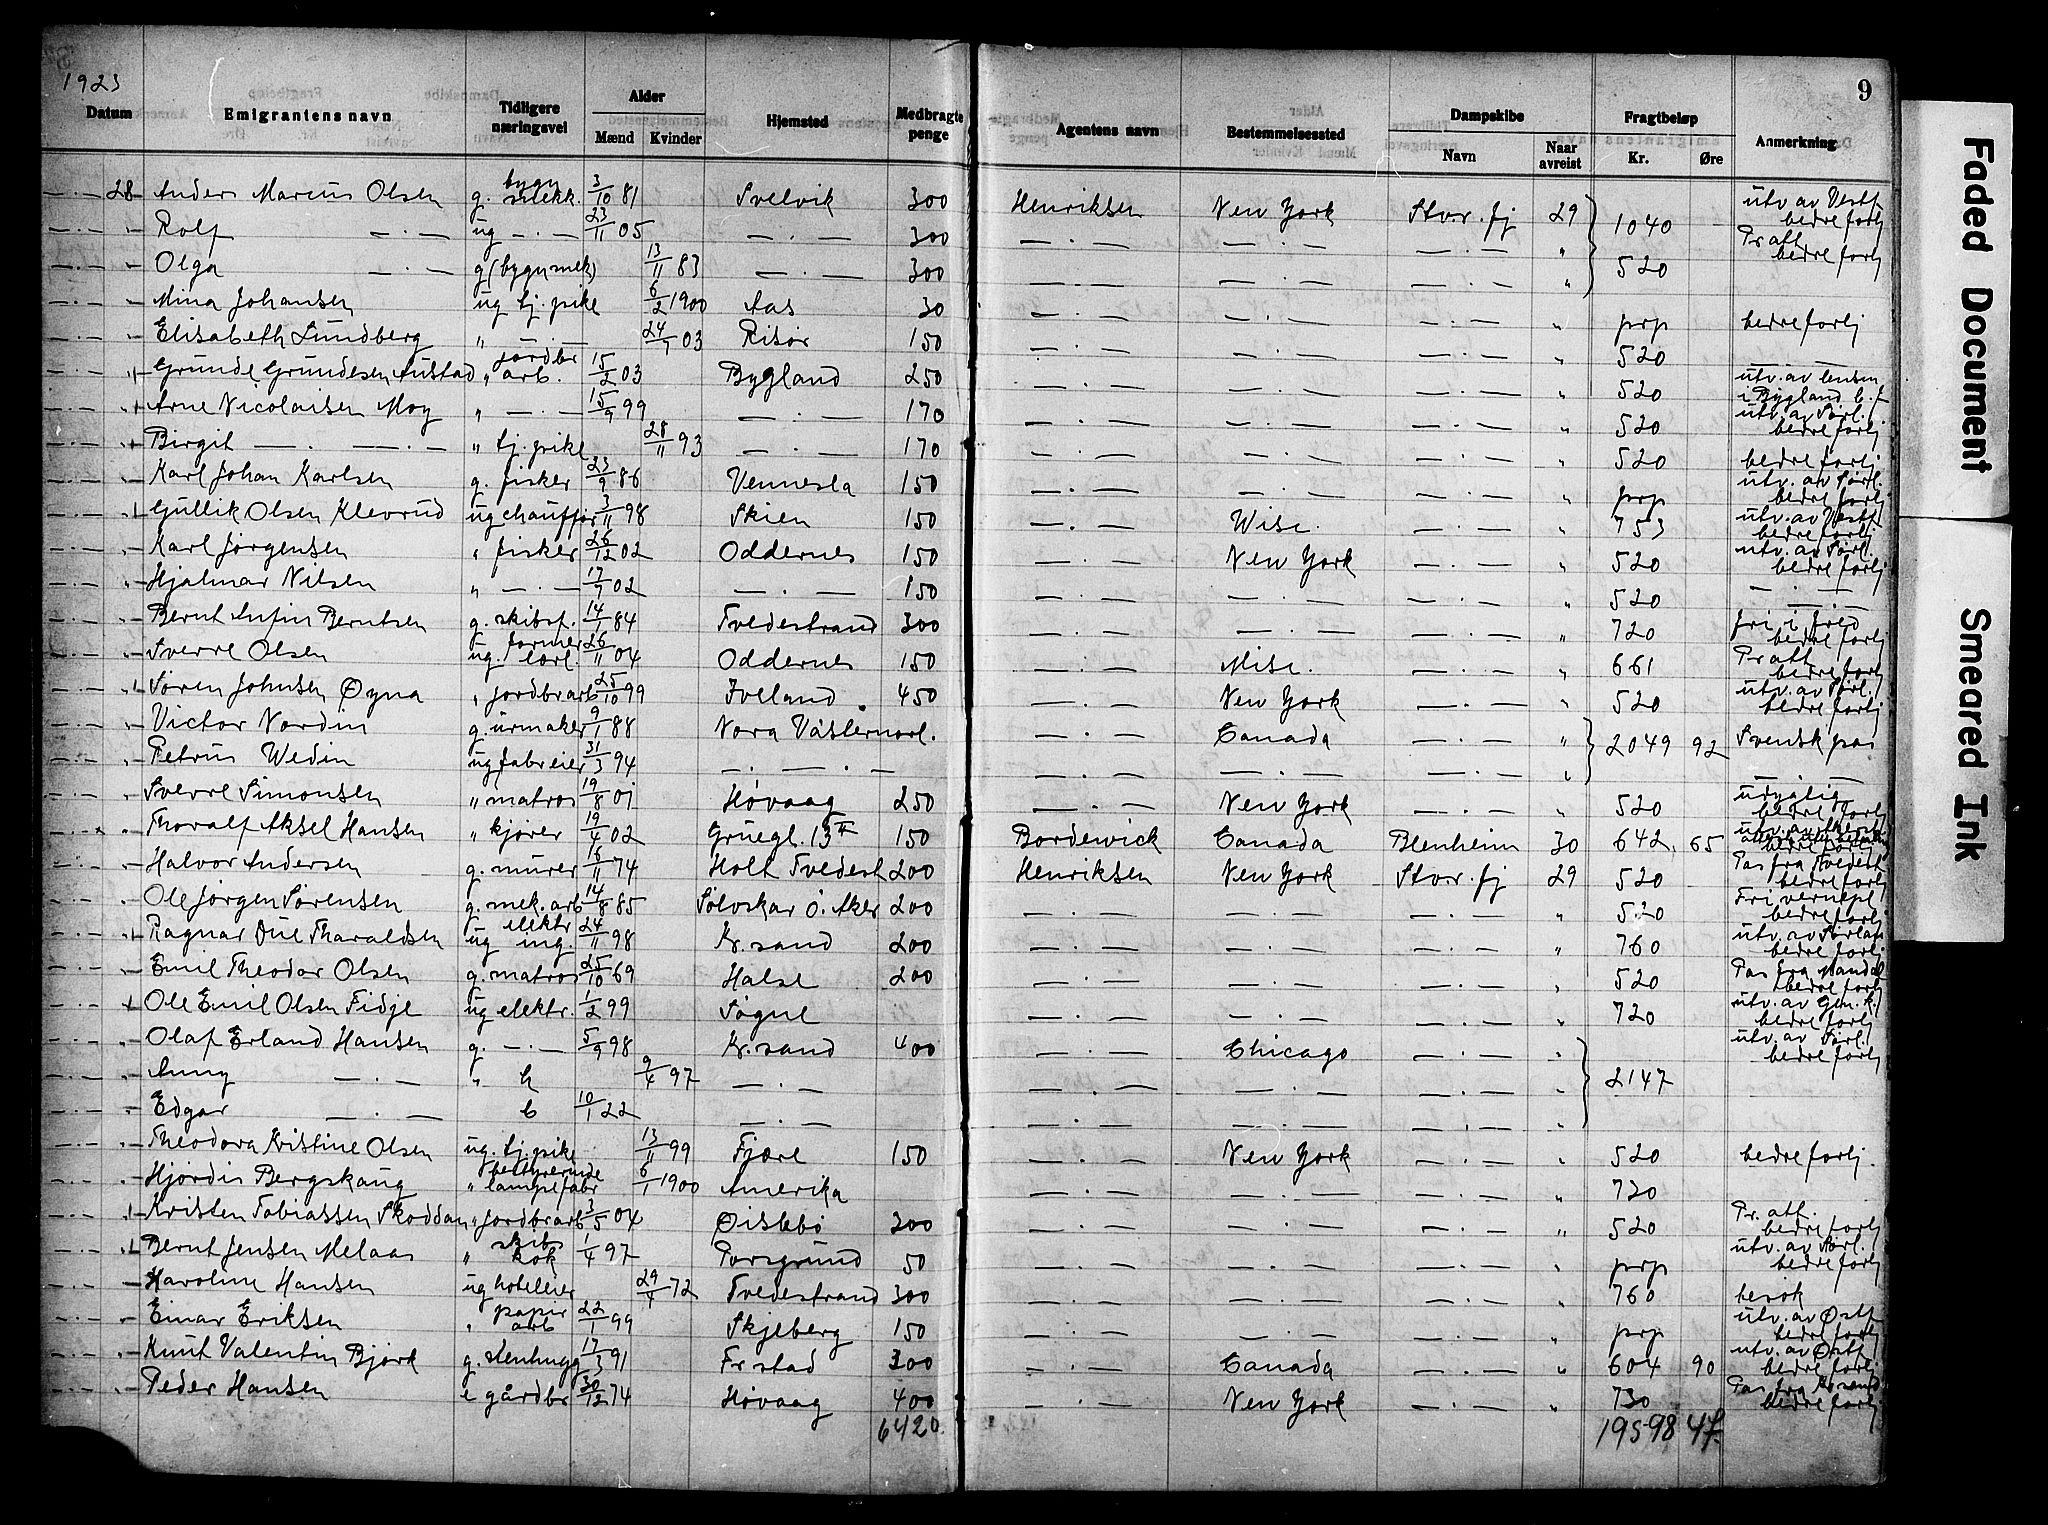 1923
9
Datum Emigrantens navn Tidligere næringsvei Alder Mænd Kvinder Hjemsted Medbragte penge Agentens navn Bestemmelsessted Dampskibe Navn Naar avreist Fragtbeløp Kr. Øre Anmerkning
— . — 28 Anders Marcus Olsen g. bygn 3/10 81 Svelvik 300 Henriksen New York Stvr. fj 29 1040 utv. av Vestf bedre forhj
— . — " Rolf — . — ug — . — 23/11 05 — . — 300 — . — — . — — . — " Pr att. bedre forhj
— . — " Olga — . — g (bygn mek) 13/11 83 — . — 300 — . — — . — — . — " 520
— . — " Mina Johansen ug tj. pike 6/2 1900 Aas 30 — . — — . — — . — " prp bedre forhj
— . — " Elisabeth Lundberg " — . — 24/7 03 Risør 150 — . — — . — — . — " 520 —
— . — " Grunde Grundesen Austad " jordbr arb. 15/2 03 Bygland 250 — . — — . — — . — " 520 utv. av lensm i Bygland
— . — " Arne Nicolaisen Moy " — . — 15/9 99 — . — 170 — . — — . — — . — " 520 utv. av Sørl. bedre forhj
— . — " Birgit — . — — . — " tj. pike 28/11 93 — . — 170 — . — — . — — . — " 520 bedre forhj
— . — " Karl Johan Karlsen g. fisker 23/9 86 Vennesla 150 — . — — . — — . — " prp utv. av Sørl. bedre forhj
— . — " Gullik Olsen Klevrud ug chauffør 3/11 98 Skien 150 — . — Wisc. — . — " 753 utv. av Vestf bedre forhj
— . — " Karl Jørgensen " fisker 26/12 02 Oddernes 150 — . — New York — . — " 520 utv. av Sørl. bedre forhj
— . — " Hjalmar Nilsen " — . — 17/7 02 — . — 150 — . — — . — — . — " 520 — . —
— . — " Bernt Anfin Berntsen g. skibsf. 14/1 84 Tvedestrand 300 — . — — . — — . — " 720 fri i fred bedre forhj
— . — " Sverre Olsen ug. former lærl. 26/11 04 Oddernes 150 — . — Misc. — . — " 661 Pr att. bedre forhj
— . — " Søren Johnsen Øyna " jordbrarb 25/10 99 Iveland 450 — . — New York — . — " 520 utv. av Sørl. bedre forhj
— . — " Victor Nordin g. urmaker 9/1 88 Nora Västernorl. — . — Canada — . — " 2049 92 Svensk pas
— . — " Petrus Wedin ug fabreier 31/3 94 — . — . — — . — — . — — . — " —
— . — " Sverre Simonsen " matros 19/8 01 Høvaag 250 — . — New York — . — " 520 udyglig bedre forhj
— . — " Thoralf Aksel Hansen " kjører 19/4 02 Gruegt. 13 II 150 Bordewick Canada Blenheim 30 642 65 bedre forhj
— . — " Halvor Andersen g. murer 16/11 74 Holt Tvedest 200 Henriksen New York Stvr. fj 29 520 Pas fra Tvedest bedre forhj
— . — " Ole Jørgen Sørensen g. mek. arb 14/8 85 Sølvskar Ø. Aker 200 — . — — . — — . — " 520 Fri vernepl bedre forhj
— . — " Ragnar Due Tharaldsen ug elektr ing. 24/11 98 Kr. sand 200 — . — — . — — . — " 760 utv. av Sørlan bedre forhj
— . — " Emil Theodor Olsen g. matros 25/10 69 Halse 200 — . — — . — — . — " 520 Pas fra Mandal bedre forhj
— . — " Ole Emil Olsen Fidje ug elektr. 1/2 99 Søgne — . — — . — — . — " 720 utv. av Gen. k. bedre forhj
— . — " Olaf Erland Hansen g. — . — 5/9 98 Kr. sand 400 — . — Chicago — . — " utv. av Sørl. bedre forhj
— . — " Anny — . — " h 9/4 97 — . — — . — — . — — . — " 2147
— . — " Edgar — . — b 10/1 22 — . — — . — — . — — . — "
— . — " Theodora Kristine Olsen ug. tj. pike 13/11 99 Fjære 150 — . — New York — . — " 520 bedre forhj.
— . — " Hjørdis Bergskaug " bestyrerinde lampefabr 6/1 1900 Amerika — . — — . — — . — " 720
— . — " Kristen Tobiassen Skoddan " jordbrarb 3/5 04 Øislebø 300 — . — — . — — . — " 520 Pr. att. bedre forhj
— . — " Bernt Jensen Melaas " skibs kok 1/4 97 Porsgrund 50 — . — — . — — . — " prp utv. av Sørl. bedre forhj
— . — " Karoline Hansen ug hotelleier 29/4 72 Tvedestrand 300 — . — — . — — . — " 760 besøk
— . — " Einar Eriksen " papir arb 22/1 99 Skjeberg 150 — . — — . — — . — " prp utv. av Østf bedre forhj
— . — " Knut Valentin Bjørk g. stenhugg 17/3 91 Fr. stad 300 — . — Canada — . — " 604 90 utv. av Østf bedre forhj
— . — " Peder Hansen e gårdbr 30/12 74 Høvaag 400 — . — New York — . — " 730 Pas fra Kr sand bedre forhj
6420 19598 47
Faded Document
Smeared Ink